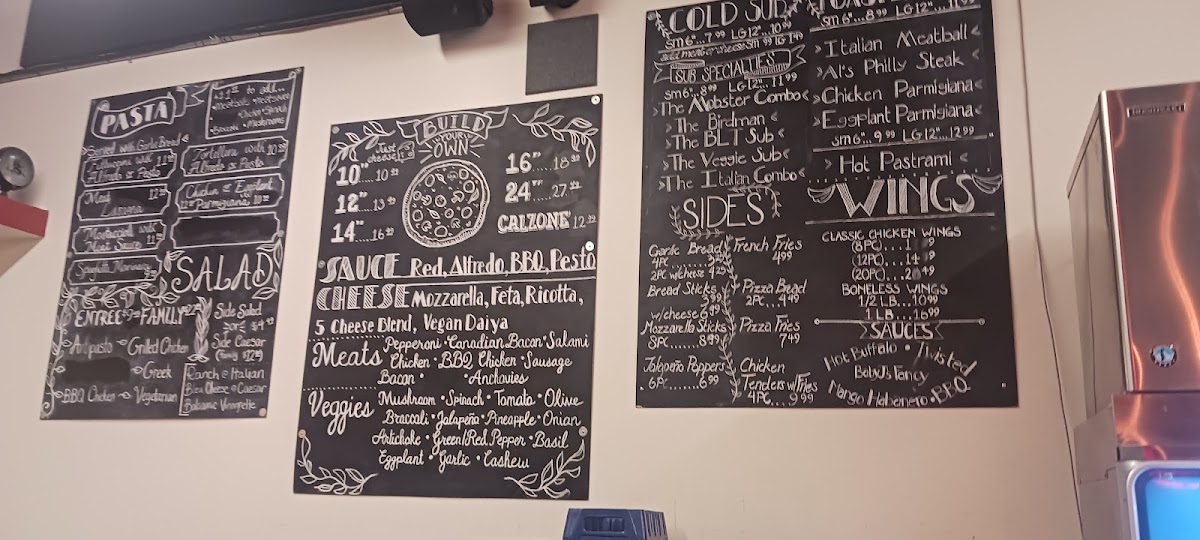 PASTA
to add..
Meatballs • Meatsauce
Chicken • Spinach
Broccoli • Mushrooms
Served with Garlic Bread
Fettuccine with
Alfredo or Pesto
Meat
Lasagna
Mostaccioli with
Meat Sauce
Spaghetti Marinara
Tortellini with
Alfredo or Pesto
Chicken or Eggplant
Parmigiana
SALAD
ENTREE FAMILY
Antipasto
Grilled Chicken
Greek
BBQ Chicken
Vegetarian
Side Salad
Side Caesar
Ranch • Italian
Bleu Cheese • Caesar
Balsamic Vinaigrette
BUILD
YOUR
OWN
Just
cheese!
10"....10.99
12"....13.99
14"....16.99
16"....18.99
24"....27.99
CALZONE 12.99
SAUCE Red, Alfredo, BBQ, Pesto
CHEESE Mozzarella, Feta, Ricotta,
5 Cheese Blend, Vegan Daiya
Meats Pepperoni • Canadian Bacon • Salami
Chicken • BBQ Chicken • Sausage
Bacon • • Anchovies
Veggies Mushroom • Spinach • Tomato • Olive
Broccoli • Jalapeño • Pineapple • Onion
Artichoke • Green/Red Pepper • Basil
Eggplant • Garlic • Cashew
COLD SUB
SM 6"...7.99 LG 12"...10.99
SUB SPECIALTIES
SM 6"...8.99 LG 12"...11.99
The Mobster Combo
The Birdman
The BLT Sub
The Veggie Sub
The Italian Combo
SM 6"...8.99 LG 12"...11.99
Italian Meatball
Al's Philly Steak
Chicken Parmigiana
Eggplant Parmigiana
SM 6"...9.99 LG 12"...12.99
Hot Pastrami
SIDES
Garlic Bread
4PC
2PC w/cheese 4.25
Bread Sticks
5.99
w/cheese 6.99
Mozzarella Sticks
8PC......8.99
Jalapeño Poppers
6PC......6.99
French Fries
4.99
Pizza Bread
2PC...4.49
Pizza Fries
7.49
Chicken
Tenders w/Fries
4PC...9.99
WINGS
CLASSIC CHICKEN WINGS
(8PC)...
(12PC)...
(20PC)...
BONELESS WINGS
1/2 LB...10.99
1 LB...16.99
SAUCES
Hot Buffalo • Twisted
Baby J's Fancy
Mango Habanero • BBQ